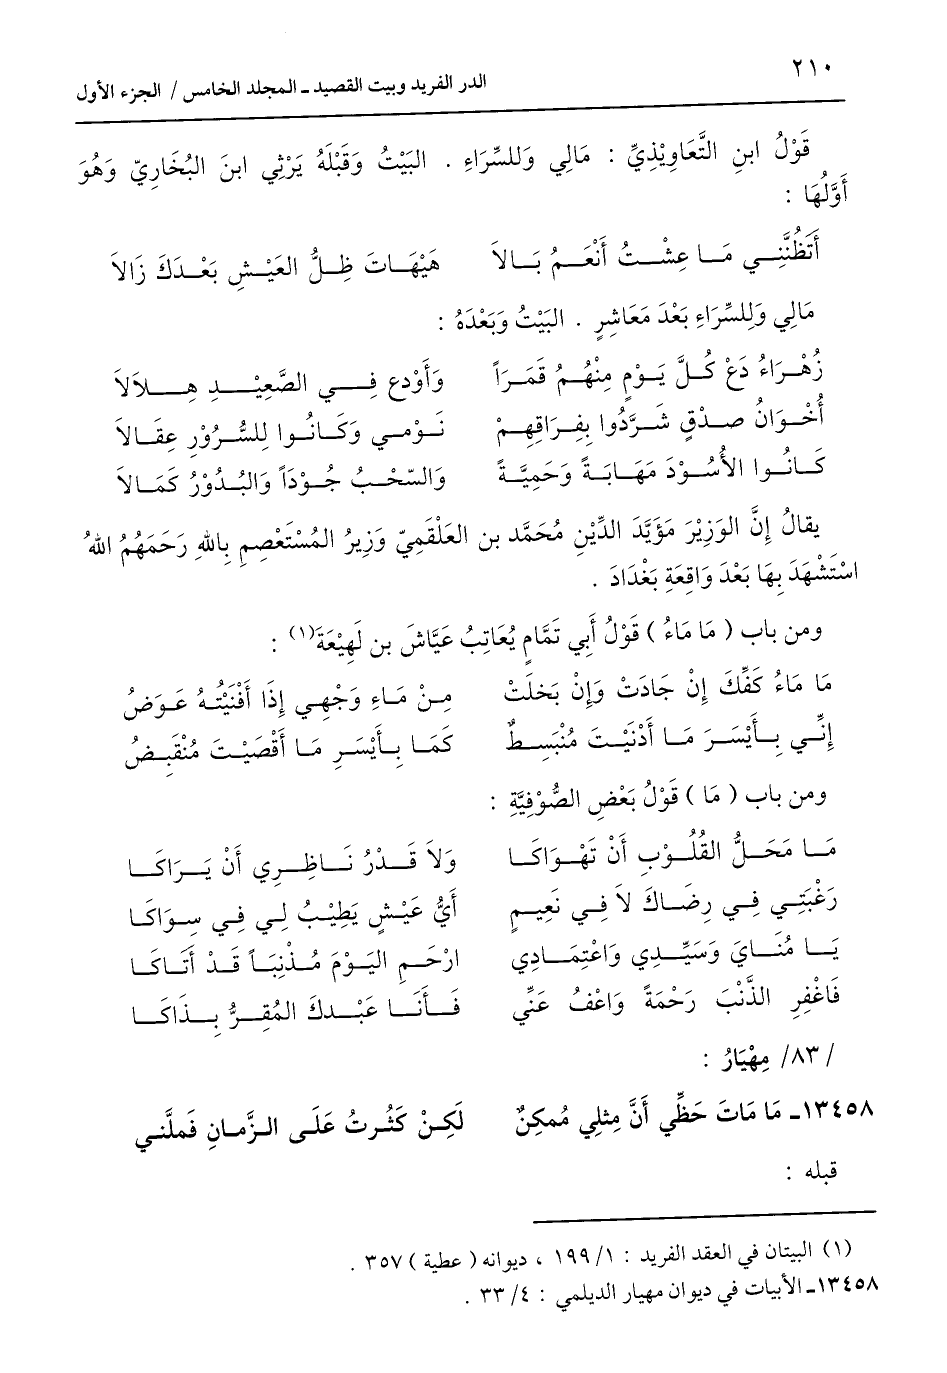 ٢١٠
الدر الفريد وبيت القصيد ـ المجلد الخامس / الجزء الأول
قَوْلُ ابنِ التَّعَاوِيْذِيِّ : مَالِي وَللسَّرَاءِ . البَيْتُ وَقَبْلَهُ يَرْثِي ابنَ البُخَارِيّ وَهُوَ
أَوَّلُهَا :
أَتَظُنَّنِي مَا عِشْتُ أَنْعَمُ بَالاَ هَيْهَاتَ ظِلُّ العَيْشِ بَعْدَكَ زَالاَ
مَالِي وَلِلسَّرَاءِ بَعْدَ مَعَاشِرٍ . البَيْتُ وَبَعْدَهُ :
زُهْرَاءُ دَعْ كُلَّ يَوْمٍ مِنْهُمُ قَمَرَاً وَأَوْدع فِي الصَّعِيْدِ هِلاَلاَ
أُخْوَانُ صدْقٍ شَرَّدُوا بِفِرَاقِهِمْ نَوْمِي وَكَانُوا لِلسُّرُوْرِ عِقَالاَ
كَانُوا الأُسُوْدَ مَهَابَةً وَحَمِيَّةً وَالسّحْبُ جُوْدَاً وَالبُدُوْرُ كَمَالاَ
يقالُ إنَّ الوَزِيْرَ مَؤَيَّدَ الدِّيْنِ مُحَمَّد بن العَلْقَمِيّ وَزِيرُ المُسْتَعْصِمِ بِاللهِ رَحَمَهُمُ اللهُ
اسْتَشْهَدَ بِهَا بَعْدَ وَاقِعَةِ بَغْدَادَ .
ومن باب ( مَا مَاءُ ) قَوْلُ أَبِي تَمَّامٍ يُعَاتِبُ عَيَّاشَ بن لَهِيْعَةَ(١) :
مَا مَاءُ كَفِّكَ إِنْ جَادَتْ وَإِنْ بَخلَتْ مِنْ مَاءِ وَجْهِي إِذَا أَفْنَيْتُهُ عَوَضُ
إِنِّي بِأَيْسَرَ مَا أَدْنَيْتَ مُنْبَسِطٌ كَمَا بِأَيْسَرِ مَا أَقْصَيْتَ مُنْقَبِضُ
ومن باب ( مَا ) قَوْلُ بَعْضِ الصُّوْفِيَّةِ :
مَا مَحَلُّ القُلُوْبِ أَنْ تَهْوَاكَا وَلاَ قَدْرُ نَاظِرِي أَنْ يَرَاكَا
رَغْبَتِي فِي رِضَاكَ لاَ فِي نَعِيمٍ أَيُّ عَيْشٍ يَطِيْبُ لِي فِي سِوَاكَا
يَا مُنَايَ وَسَيِّدِي وَاعْتِمَادِي ارْحَمِ اليَوْمَ مُذْنِبَاً قَدْ أَتَاكَا
فَاغْفِرِ الذَّنْبَ رَحْمَةً وَاعْفُ عَنِّي فَأَنَا عَبْدكَ المُقِرُّ بِذَاكَا
/٨٣/ مِهْيَارُ :
١٣٤٥٨ـ مَا مَاتَ حَظِّي أَنَّ مِثلِي مُمكِنٌ لَكِنْ كَثُرتُ عَلَى الزَّمانِ فَملَّني
قبله :
(١) البيتان في العقد الفريد : ١/ ١٩٩ ، ديوانه ( عطية ) ٣٥٧ .
١٣٤٥٨ـ الأبيات في ديوان مهيار الديلمي : ٤/ ٣٣ .